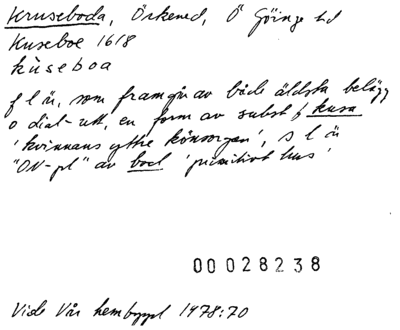 Kruseboda, Örkened, Ö Göinge hd
Kuseboe 1618
kùseboa
f l är, som framgår av både äldsta belägg
o dial-utt, en form av subst f kusa
'kvinnans yttre könsorgan', s l är
"ON-pl" av bod 'primitivt hus'
00028238
Vide Vår hembygd 1978:70